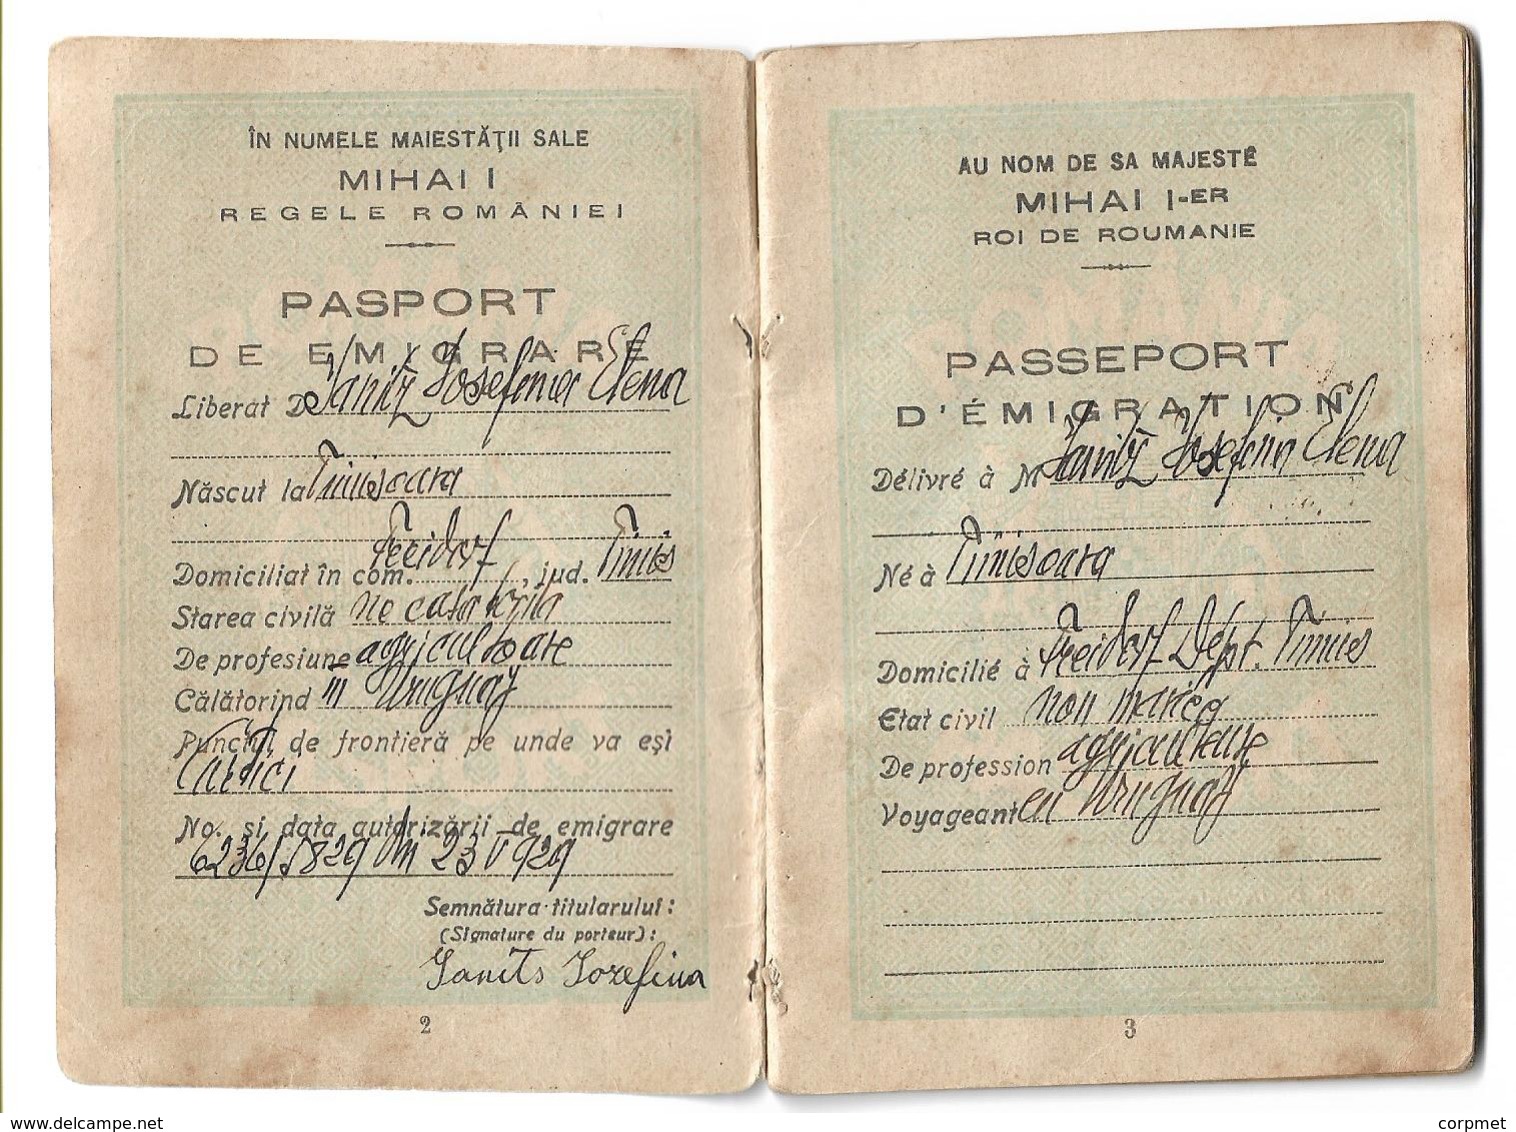 ÎN NUMELE MAIESTĂȚII SALE
MIHAI I
REGELE ROMÂNIEI
PASPORT
DE EMIGRARE
Liberat D Ianitz Iosefina Elena
Născut la Timisoara
Domiciliat în com. Freidorf, jud. Timis
Starea civilă necasatorita
De profesiune agricultoare
Călătorind in Uruguay
Punctul de frontieră pe unde va eși
Curtici
No. și data autorizării de emigrare
6236/5829 din 23 V 929
Semnătura titularului:
(Signature du porteur):
Janits Jozefina
2
AU NOM DE SA MAJESTÉ
MIHAI I-ER
ROI DE ROUMANIE
PASSEPORT
D'ÉMIGRATION
Délivré à M Ianitz Iosefina Elena
Né à Timisoara
Domicilié à Freidorf Dept. Timis
Etat civil non mariée
De profession agriculteuse
Voyageant en Uruguay
3
www.delcampe.net
corpmet